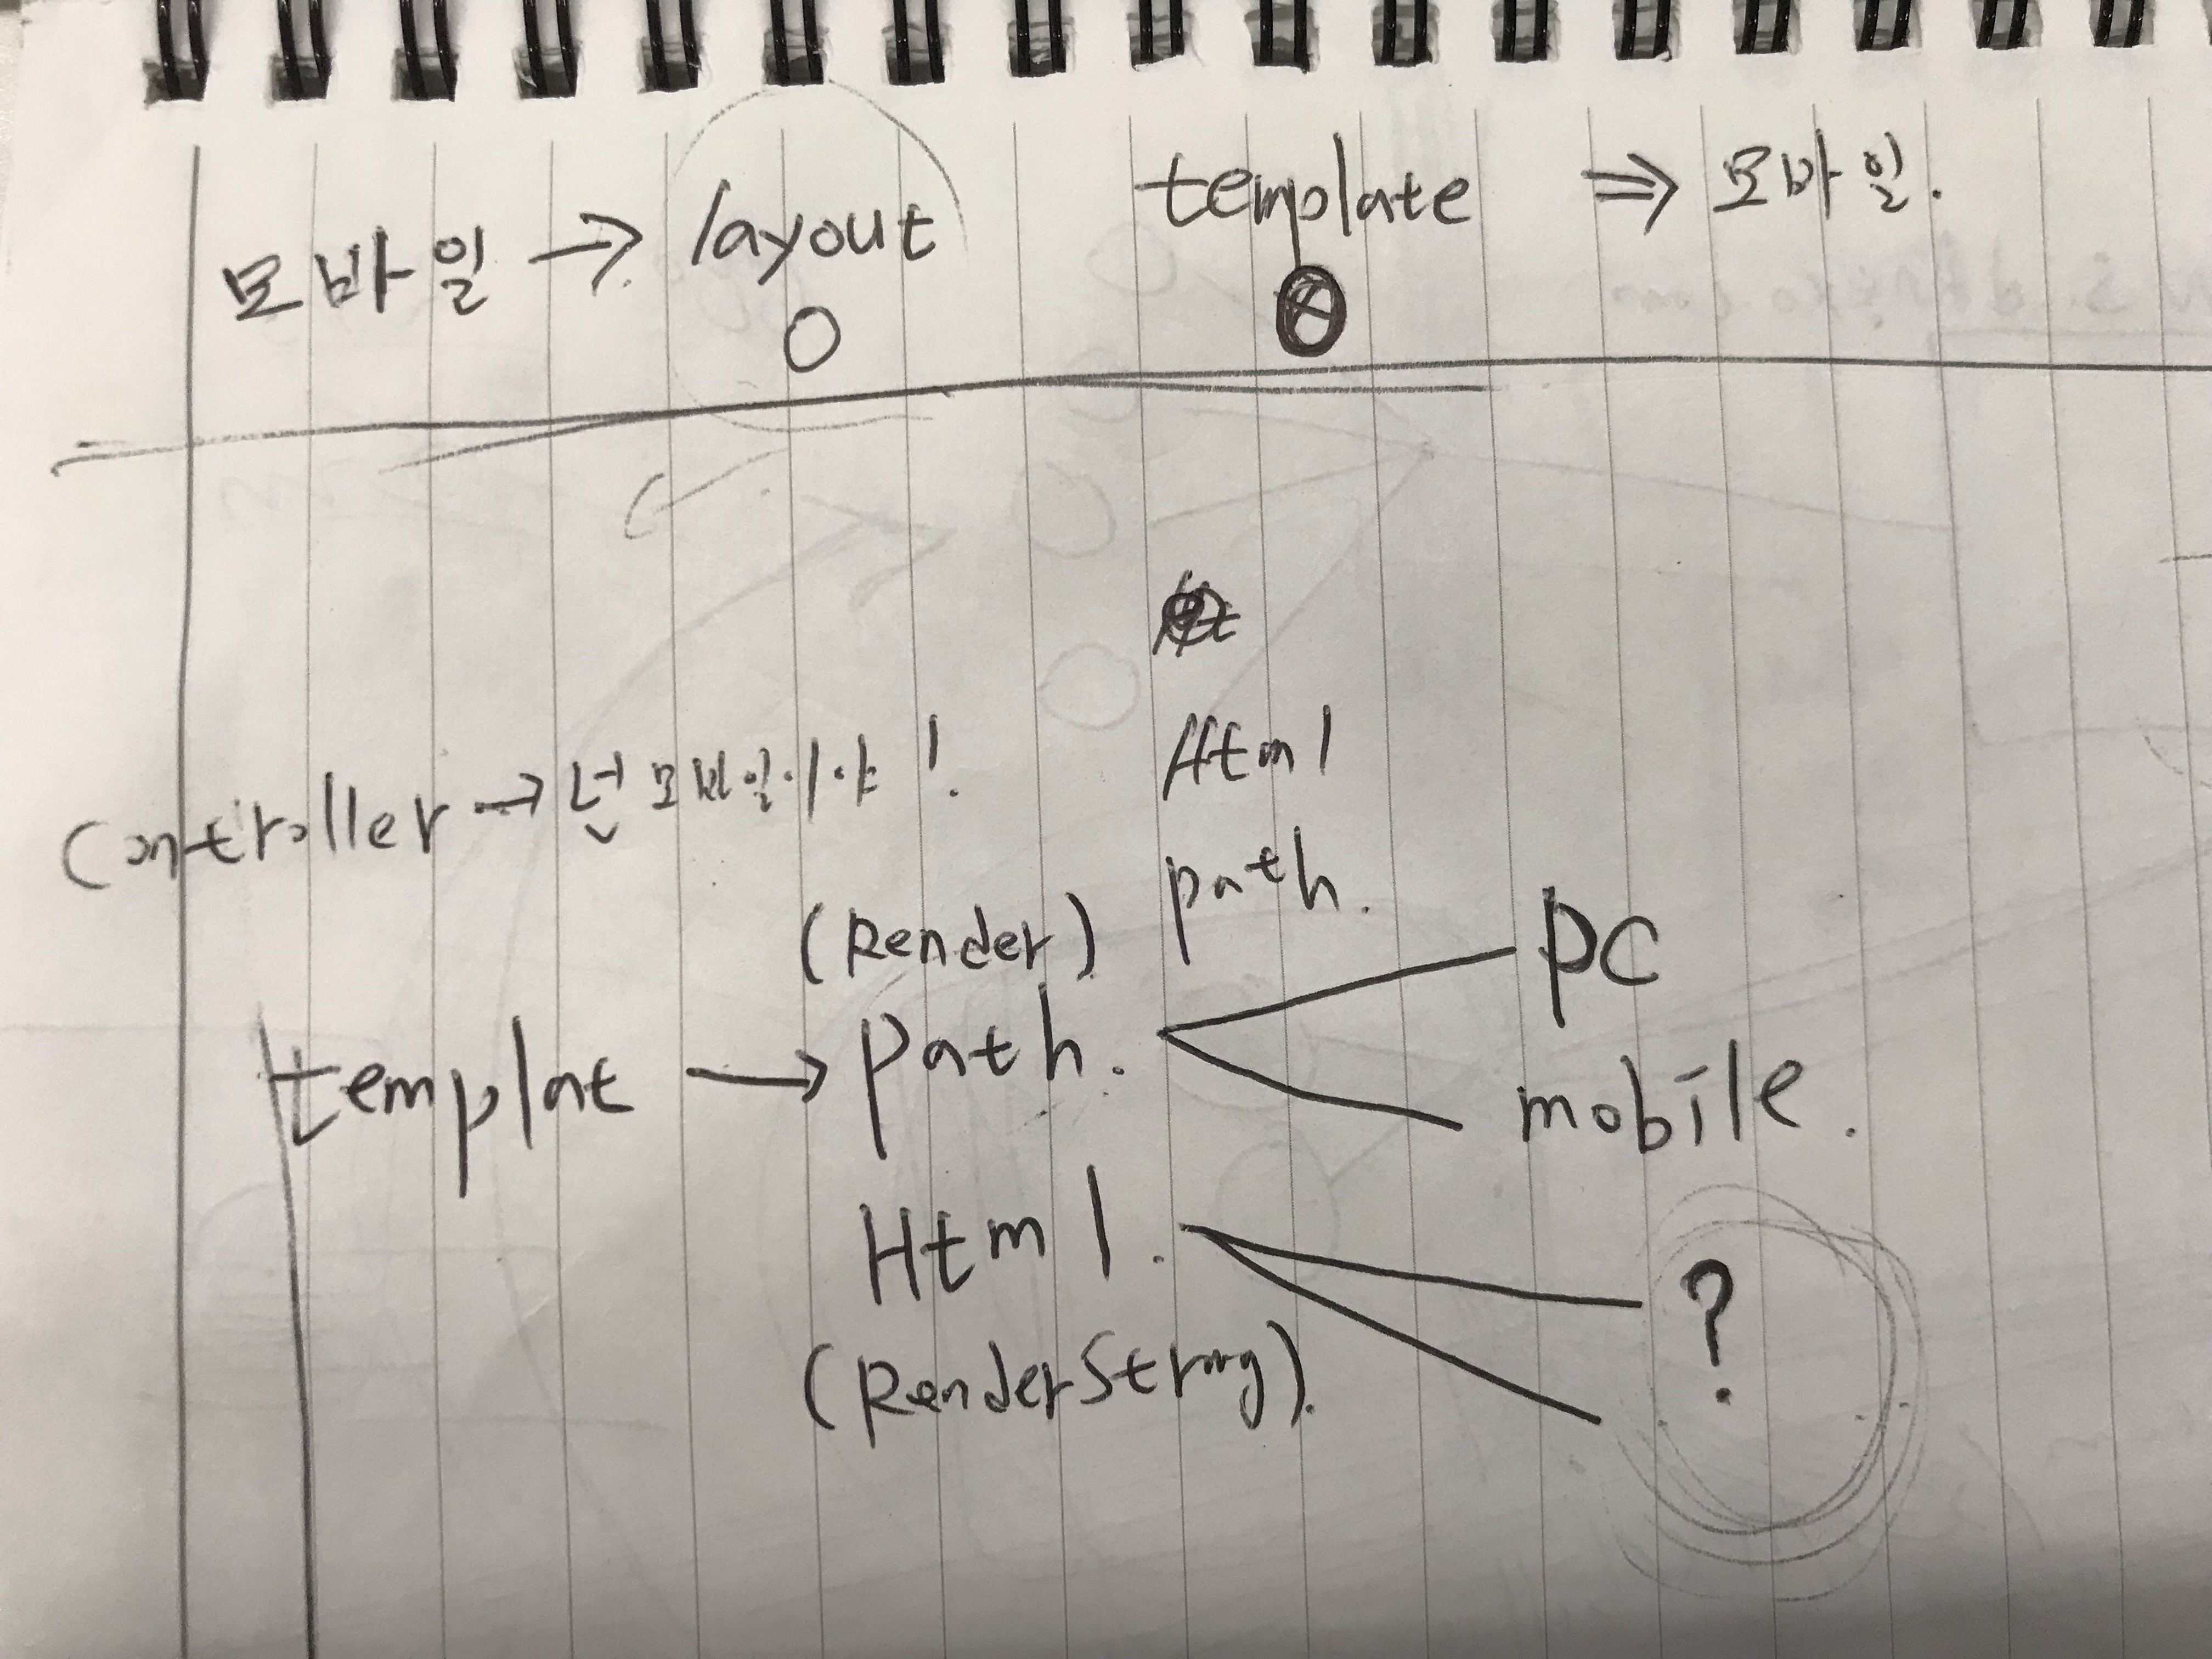 모바일 → layout template ⇒ 모바일.
O ⊗
Controller →
Html
(Render) path.
templat → path. PC
mobile.
Html. ?
(RenderString).